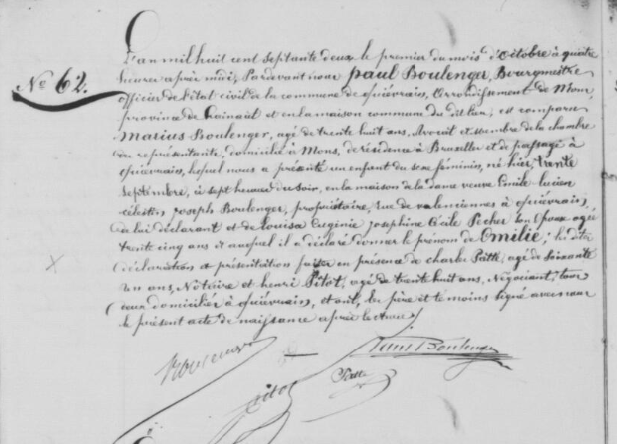 L'an mil huit cent septante deux le premier du mois d'Octobre à quatre
No 62.
heures après midi, Pardevant nous Paul Boulenger, Bourgmestre
officier de l'état civil de la commune de Quiévrain, Arrondissement de Mons,
province de Hainaut et en la maison commune du dit lieu, est comparu
Marius Boulenger, agé de trente huit ans, Avocat et membre de la chambre
des représentants, domicilié à Mons, de résidence à Bruxelles et de passage à
Quiévrain, lequel nous a présenté un enfant du sexe féminin, né hier, trente
septembre, à sept heures du soir, en la maison de la dame veuve Emile Lucien
Célestin Joseph Boulenger, propriétaire, rue de Valenciennes à Quiévrain,
de lui déclarant et de Louisa Eugénie Joséphine Cécile Pécher son Epouse agée
trente cinq ans et auquel il a déclaré donner le prénom de Emilie; les dites
déclaration et présentation faites en présence de charles Patte, agé de soixante
un ans, Notaire et henri Pitot, agé de trente huit ans, Négociant, tous
deux domiciliés à Quiévrain, et ont, les père et témoins signé avec nous
le présent acte de naissance après lecture.
Boulenger
Paul Boulenger
Pitot
Patte